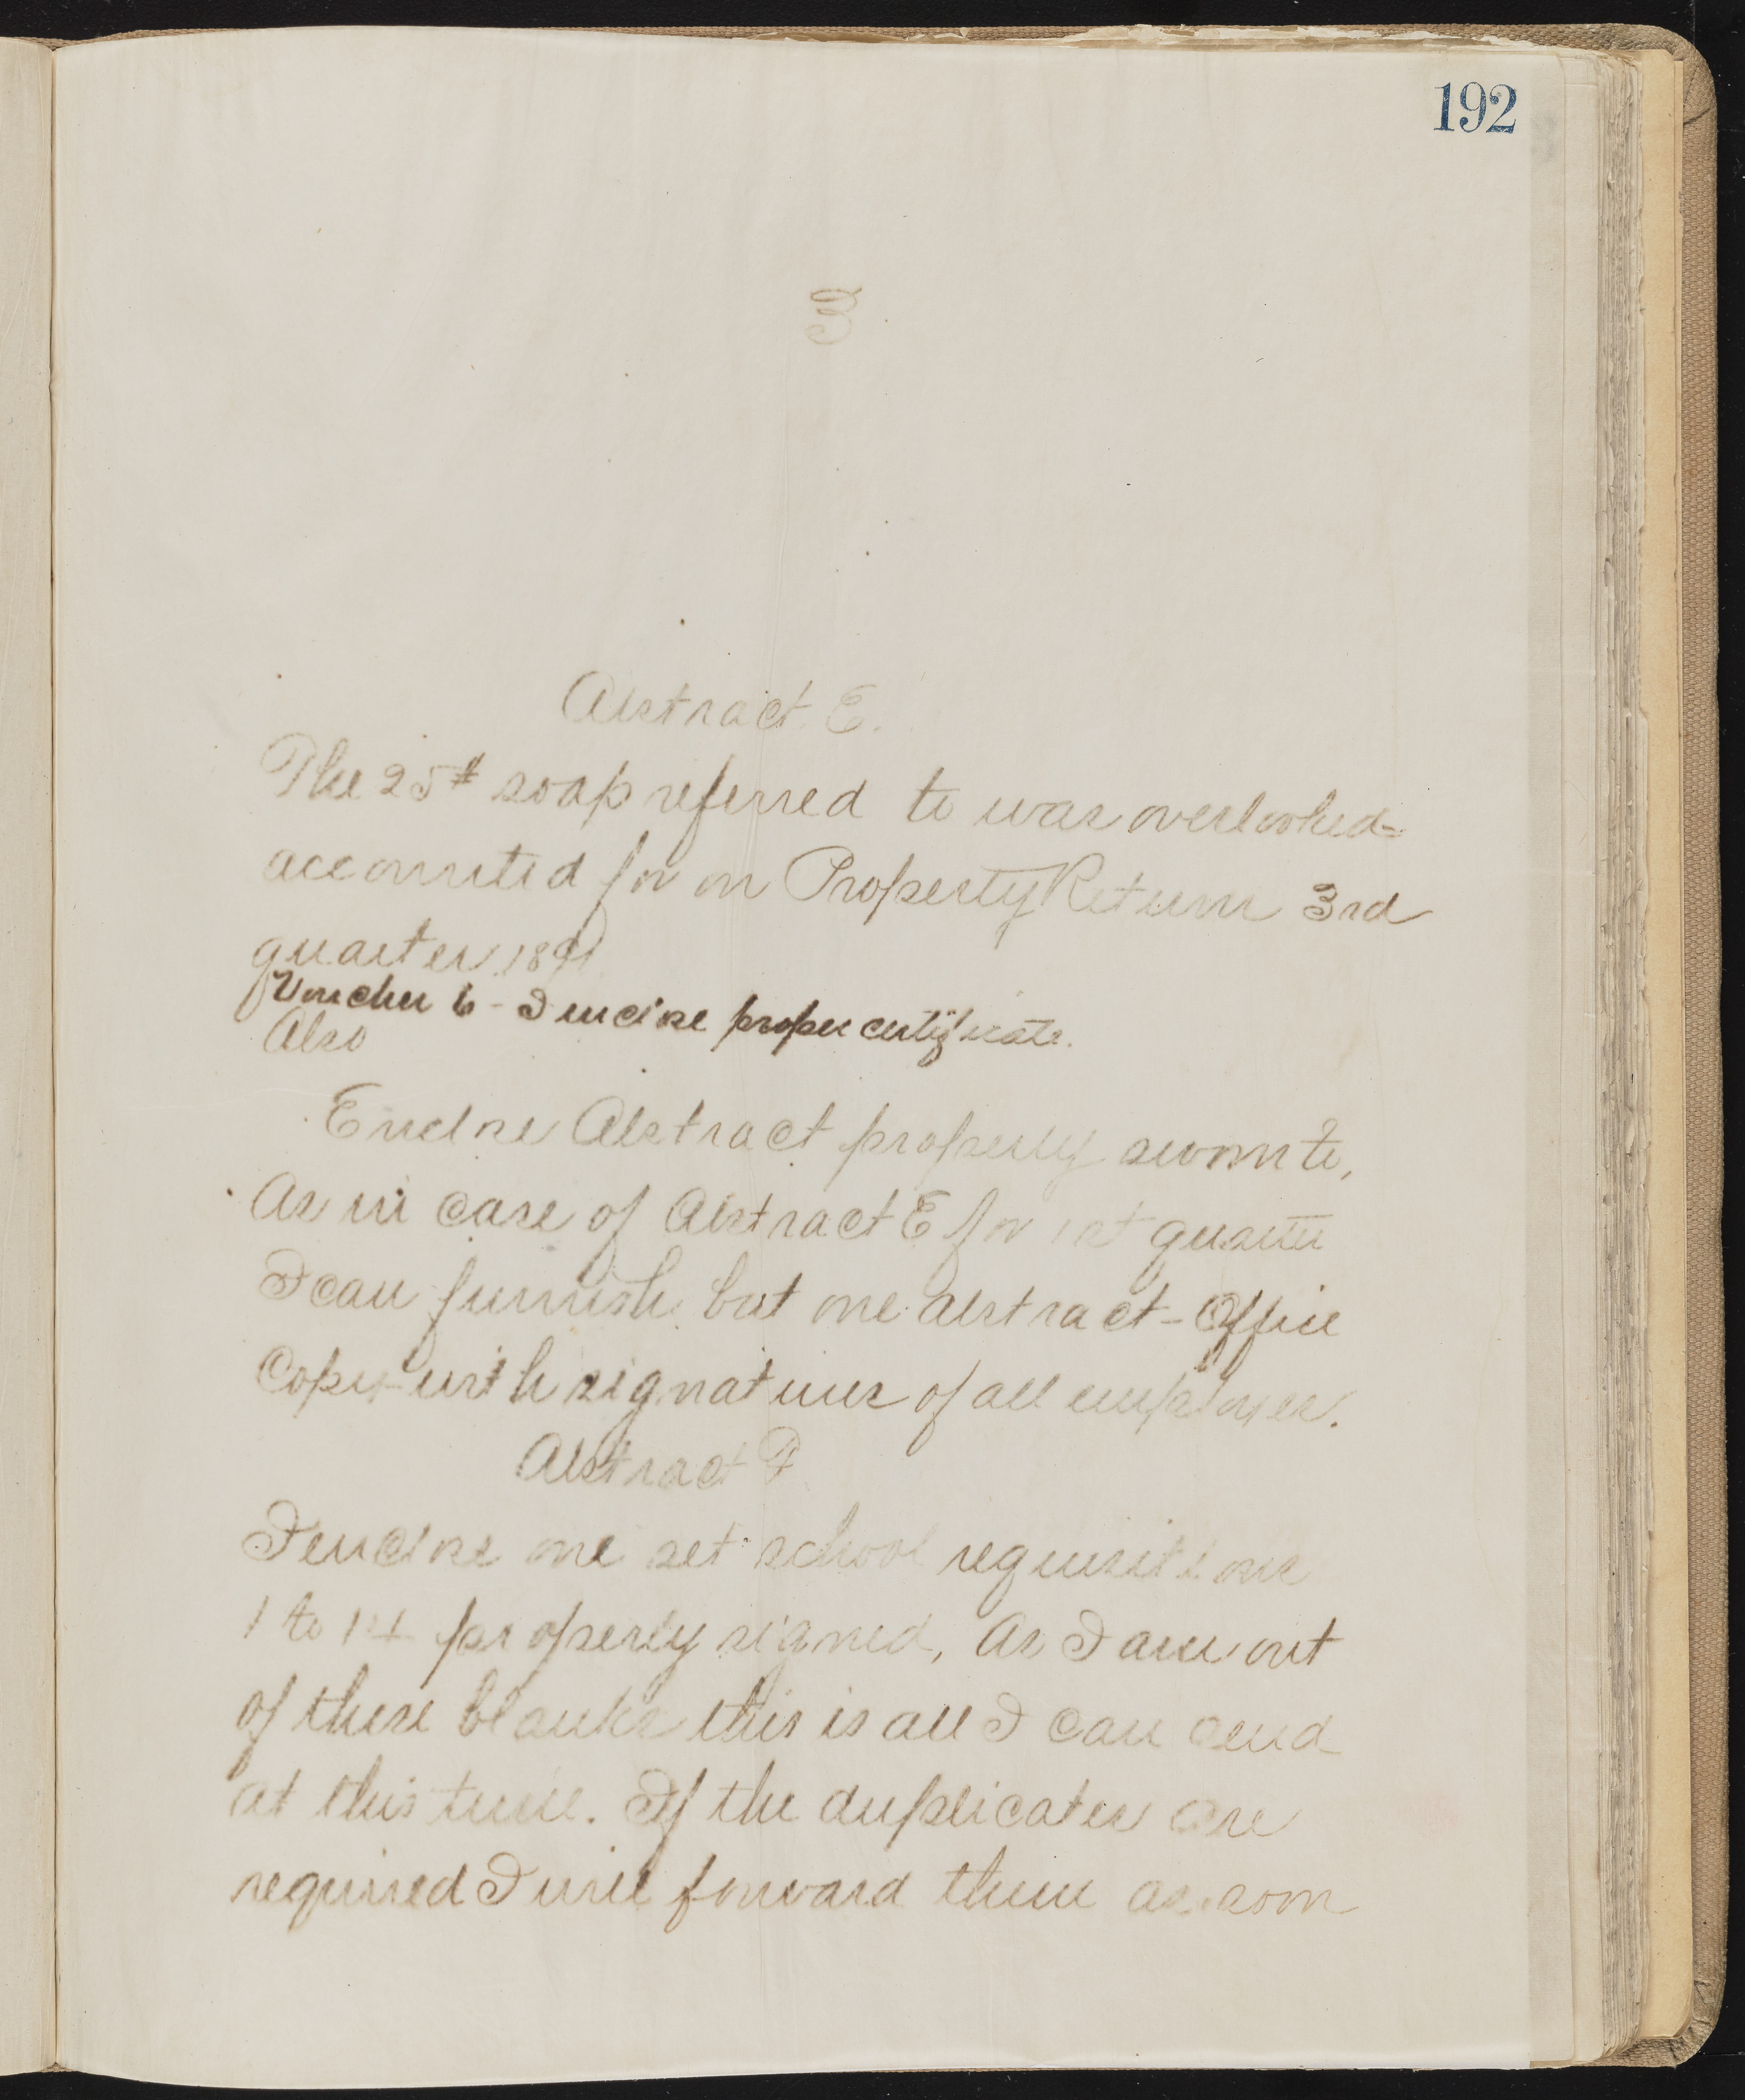 192
3
Abstract E.
The 25# soap referred to was overlooked-
accounted for on Property Return 3rd
quarter 1891
Voucher 6 - I enclose proper certificate.
Also
Enclose Abstract properly sworn to,
As in case of Abstract E for 1st quarter
I can furnish but one abstract - Office
Copy - with signatures of all employes.
Abstract F
I enclose one set school requisitions
1 to 14 properly signed, As I am out
of these blanks this is all I can send
at this time. If the duplicates are
required I will forward them as soon